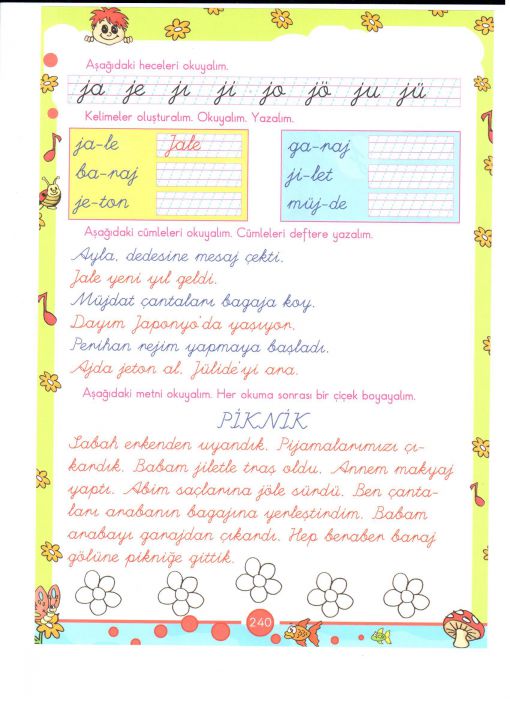 Aşağıdaki heceleri okuyalım.
ja je jı ji jo jö ju jü
Kelimeler oluşturalım. Okuyalım. Yazalım.
ja-le Jale
ba-raj
je-ton
ga-raj
ji-let
müj-de
Aşağıdaki cümleleri okuyalım. Cümleleri deftere yazalım.
Ayla, dedesine mesaj çekti.
Jale yeni yıl geldi.
Müjdat çantaları bagaja koy.
Dayım Japonya'da yaşıyor.
Perihan rejim yapmaya başladı.
Ajda jeton al. Jülide'yi ara.
Aşağıdaki metni okuyalım. Her okuma sonrası bir çiçek boyayalım.
PİKNİK
Sabah erkenden uyandık. Pijamalarımızı çı-
kardık. Babam jiletle traş oldu. Annem makyaj
yaptı. Abim saçlarına jöle sürdü. Ben çanta-
ları arabanın bagajına yerleştirdim. Babam
arabayı garajdan çıkardı. Hep beraber baraj
gölüne pikniğe gittik.
240